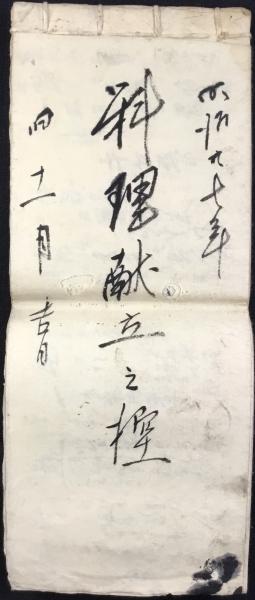 明治丗七年
料理献立之控
旧十一月吉日